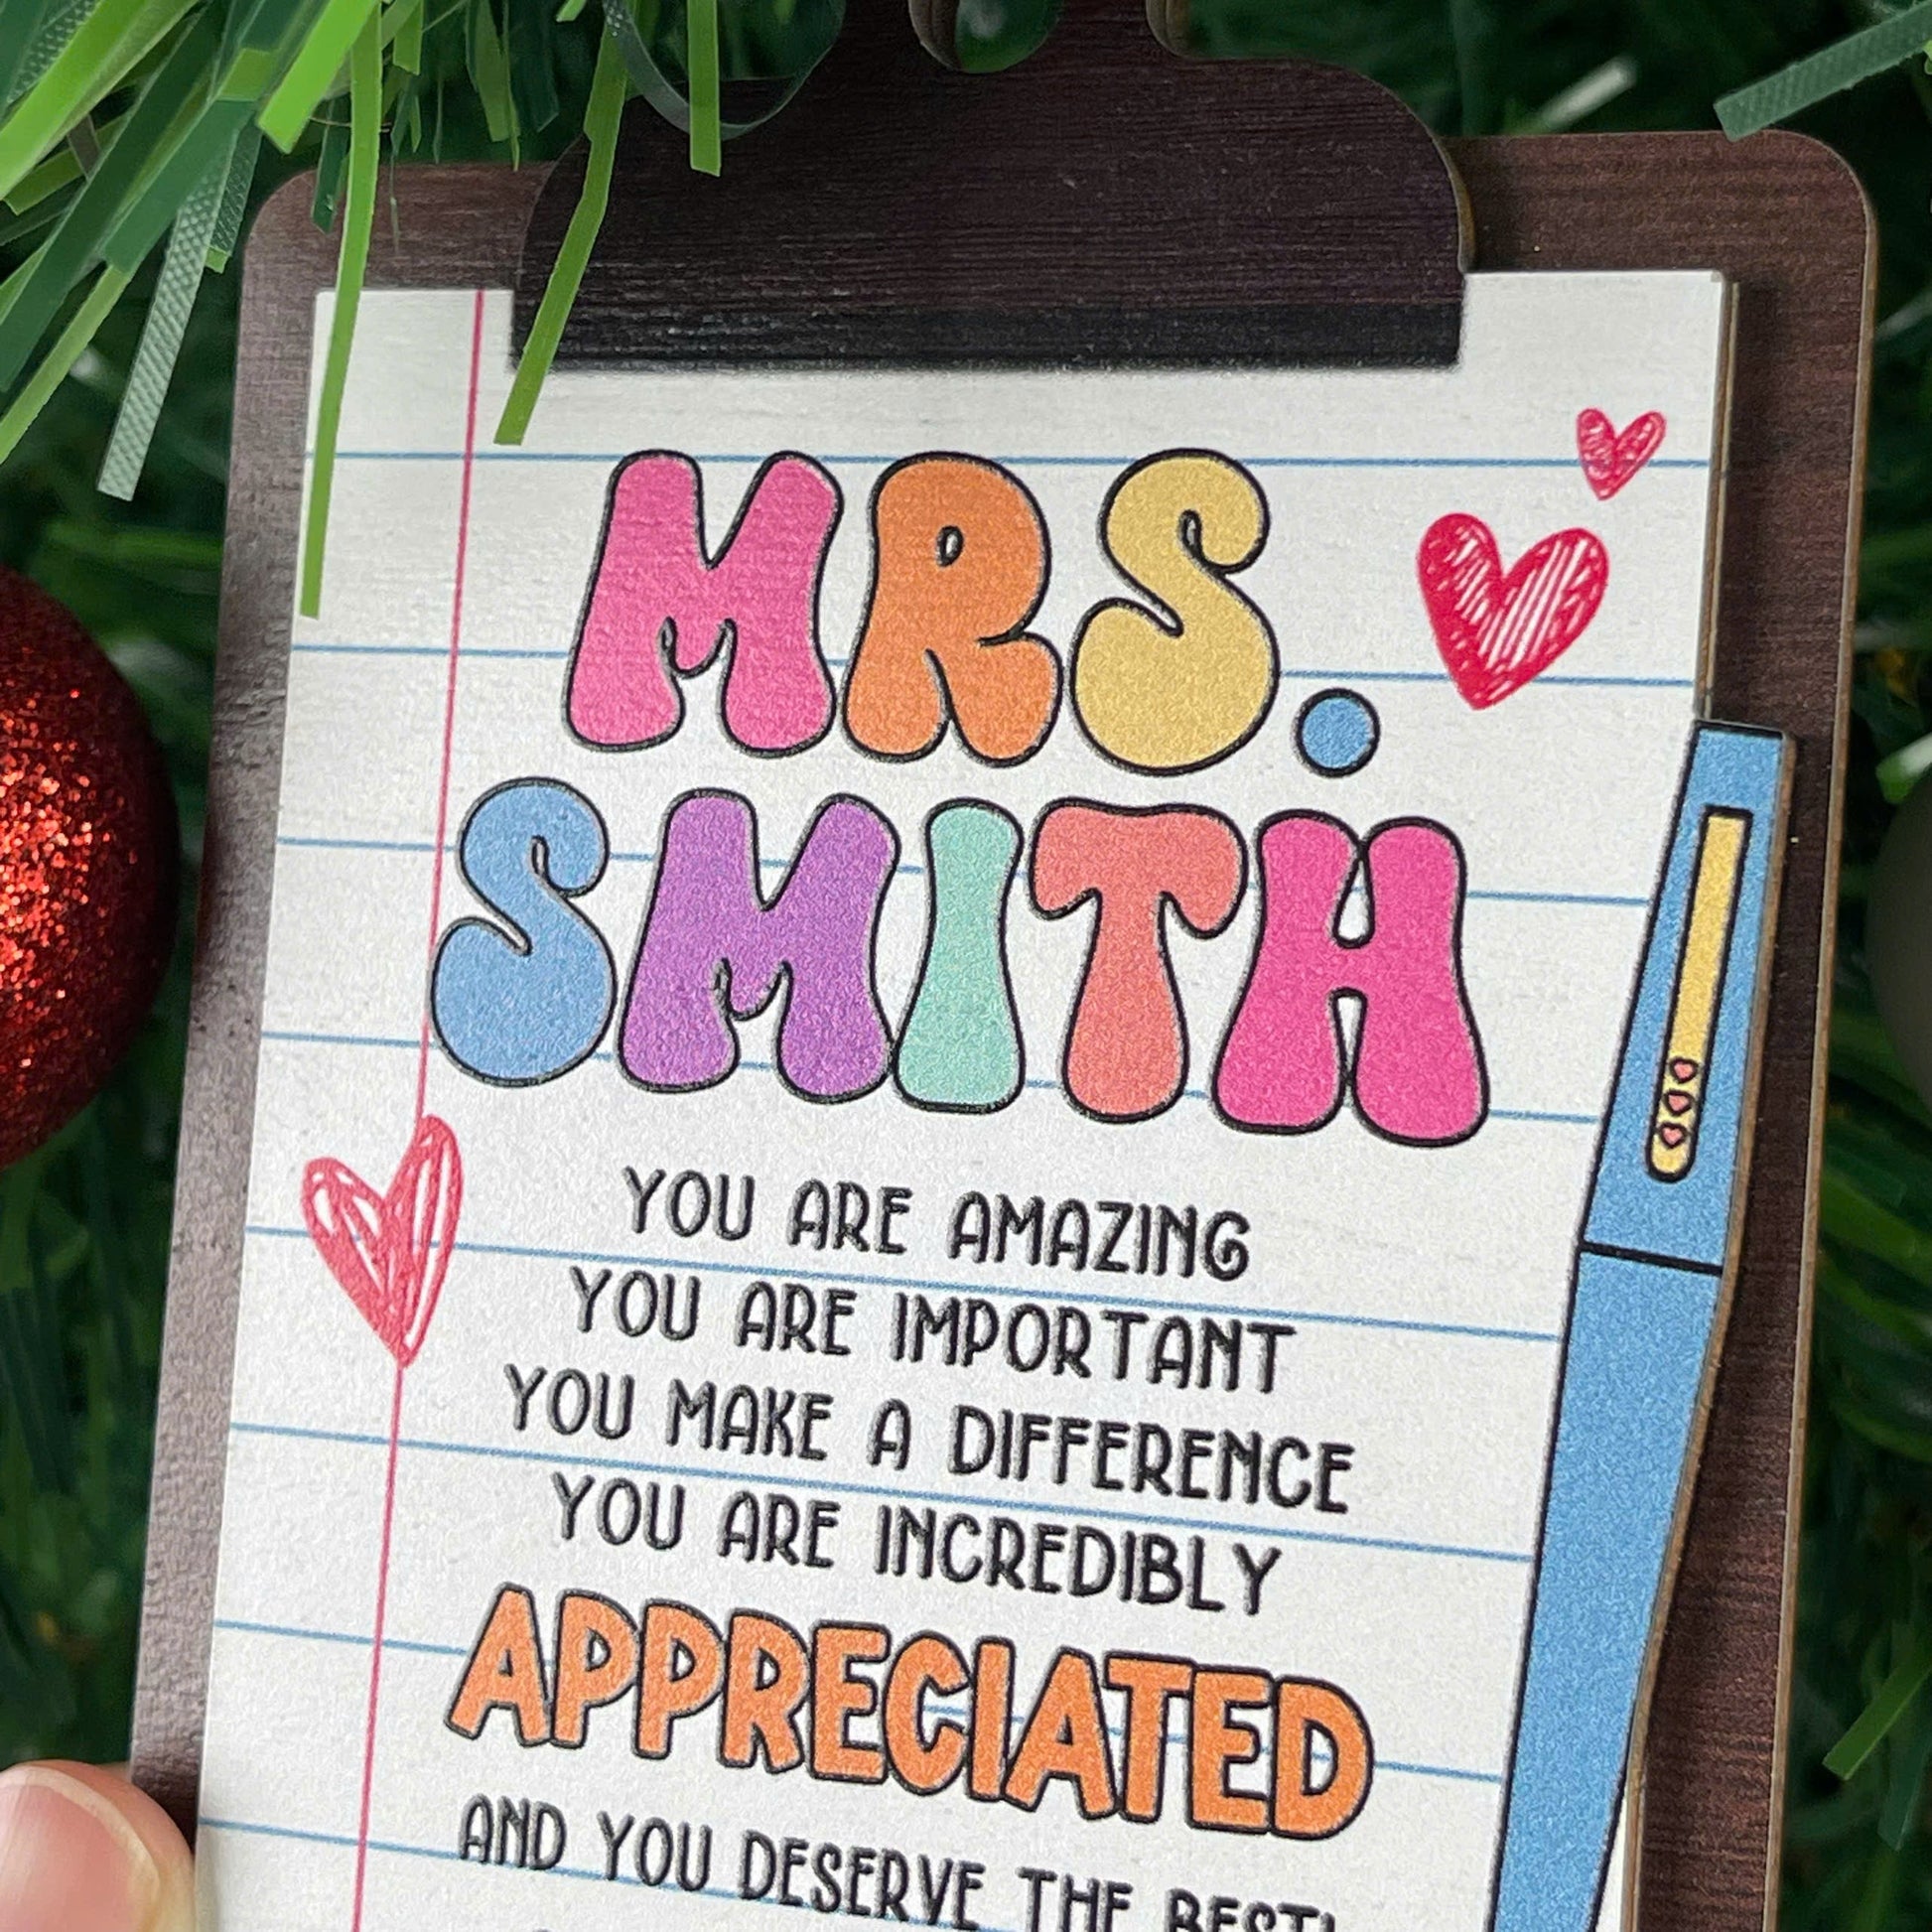 MRS.
SMITH
YOU ARE AMAZING
YOU ARE IMPORTANT
YOU MAKE A DIFFERENCE
YOU ARE INCREDIBLY
APPRECIATED
AND YOU DESERVE THE BEST!